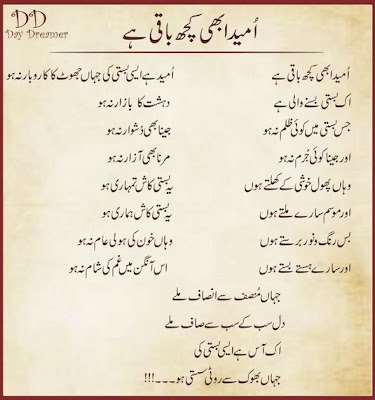 DD
Day Dreamer
اُمید ابھی کچھ باقی ہے
اُمید ابھی کچھ باقی ہے
اک بستی بسنے والی ہے
جس بستی میں کوئی ظلم نہ ہو
اور جینا کوئی جُرم نہ ہو
وہاں پھول خوشی کے کھلتے ہوں
اور موسم سارے ملتے ہوں
بس رنگ و نور برستے ہوں
اور سارے ہنستے بستے ہوں
اُمید ہے ایسی بستی کی جہاں جھوٹ کا کاروبار نہ ہو
دہشت کا بازار نہ ہو
جینا بھی دُشوار نہ ہو
مرنا بھی آزار نہ ہو
یہ بستی کاش تمہاری ہو
یہ بستی کاش ہماری ہو
وہاں خون کی ہولی عام نہ ہو
اس آنگن میں غم کی شام نہ ہو
جہاں مُنصف سے انصاف ملے
دل سب کے سب سے صاف ملے
اک آس ہے ایسی بستی کی
جہاں بھوک سے روٹی سستی ہو۔۔۔!!!